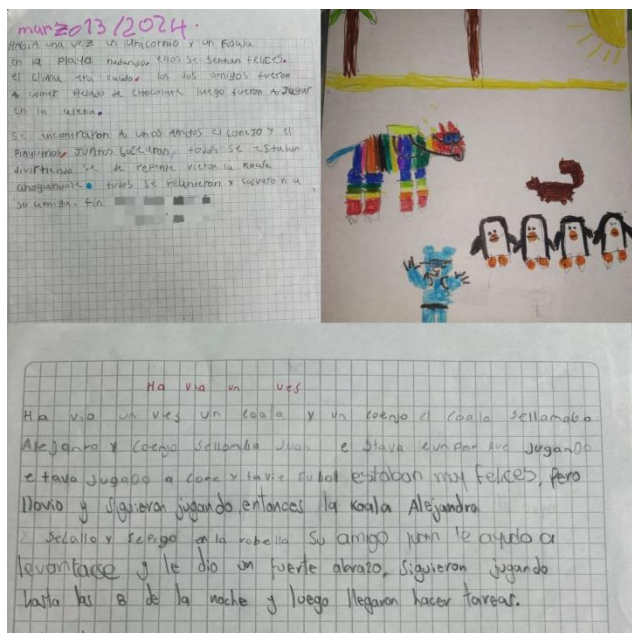 marzo 13/2024.
HABIA una vez un unicornio y un Koala
en la playa nadando. ellos se sentian FELICES.
el clima era calido. los dos amigos fueron
A comer Helado de chocolate luego fueron A Jugar
en la arena.
Se encontraron A unos Amigos el conejo y el
Pinguino, Juntos bucearon, todos se estaban
divirtiendo se de repente vieron la koala
ahogandose todos se reunieron y salvaron a
su amiga. Fin
Ha via un ves
Ha via un ves un coala y un coenjo el coala sellamaba
Alejanra y coenjo sellamba Juan e stava en un jugando
e tava jugado a core y estaban muy felices, pero
llovio y siguieron jugando entances la Koala Alejandra
secallo y sepego en la robella su amigo juan le ayudo a
levantarse y le dio un fuerte abrazo, siguieron jugando
hasta las 8 de la noche y luego llegaron hacer tareas.